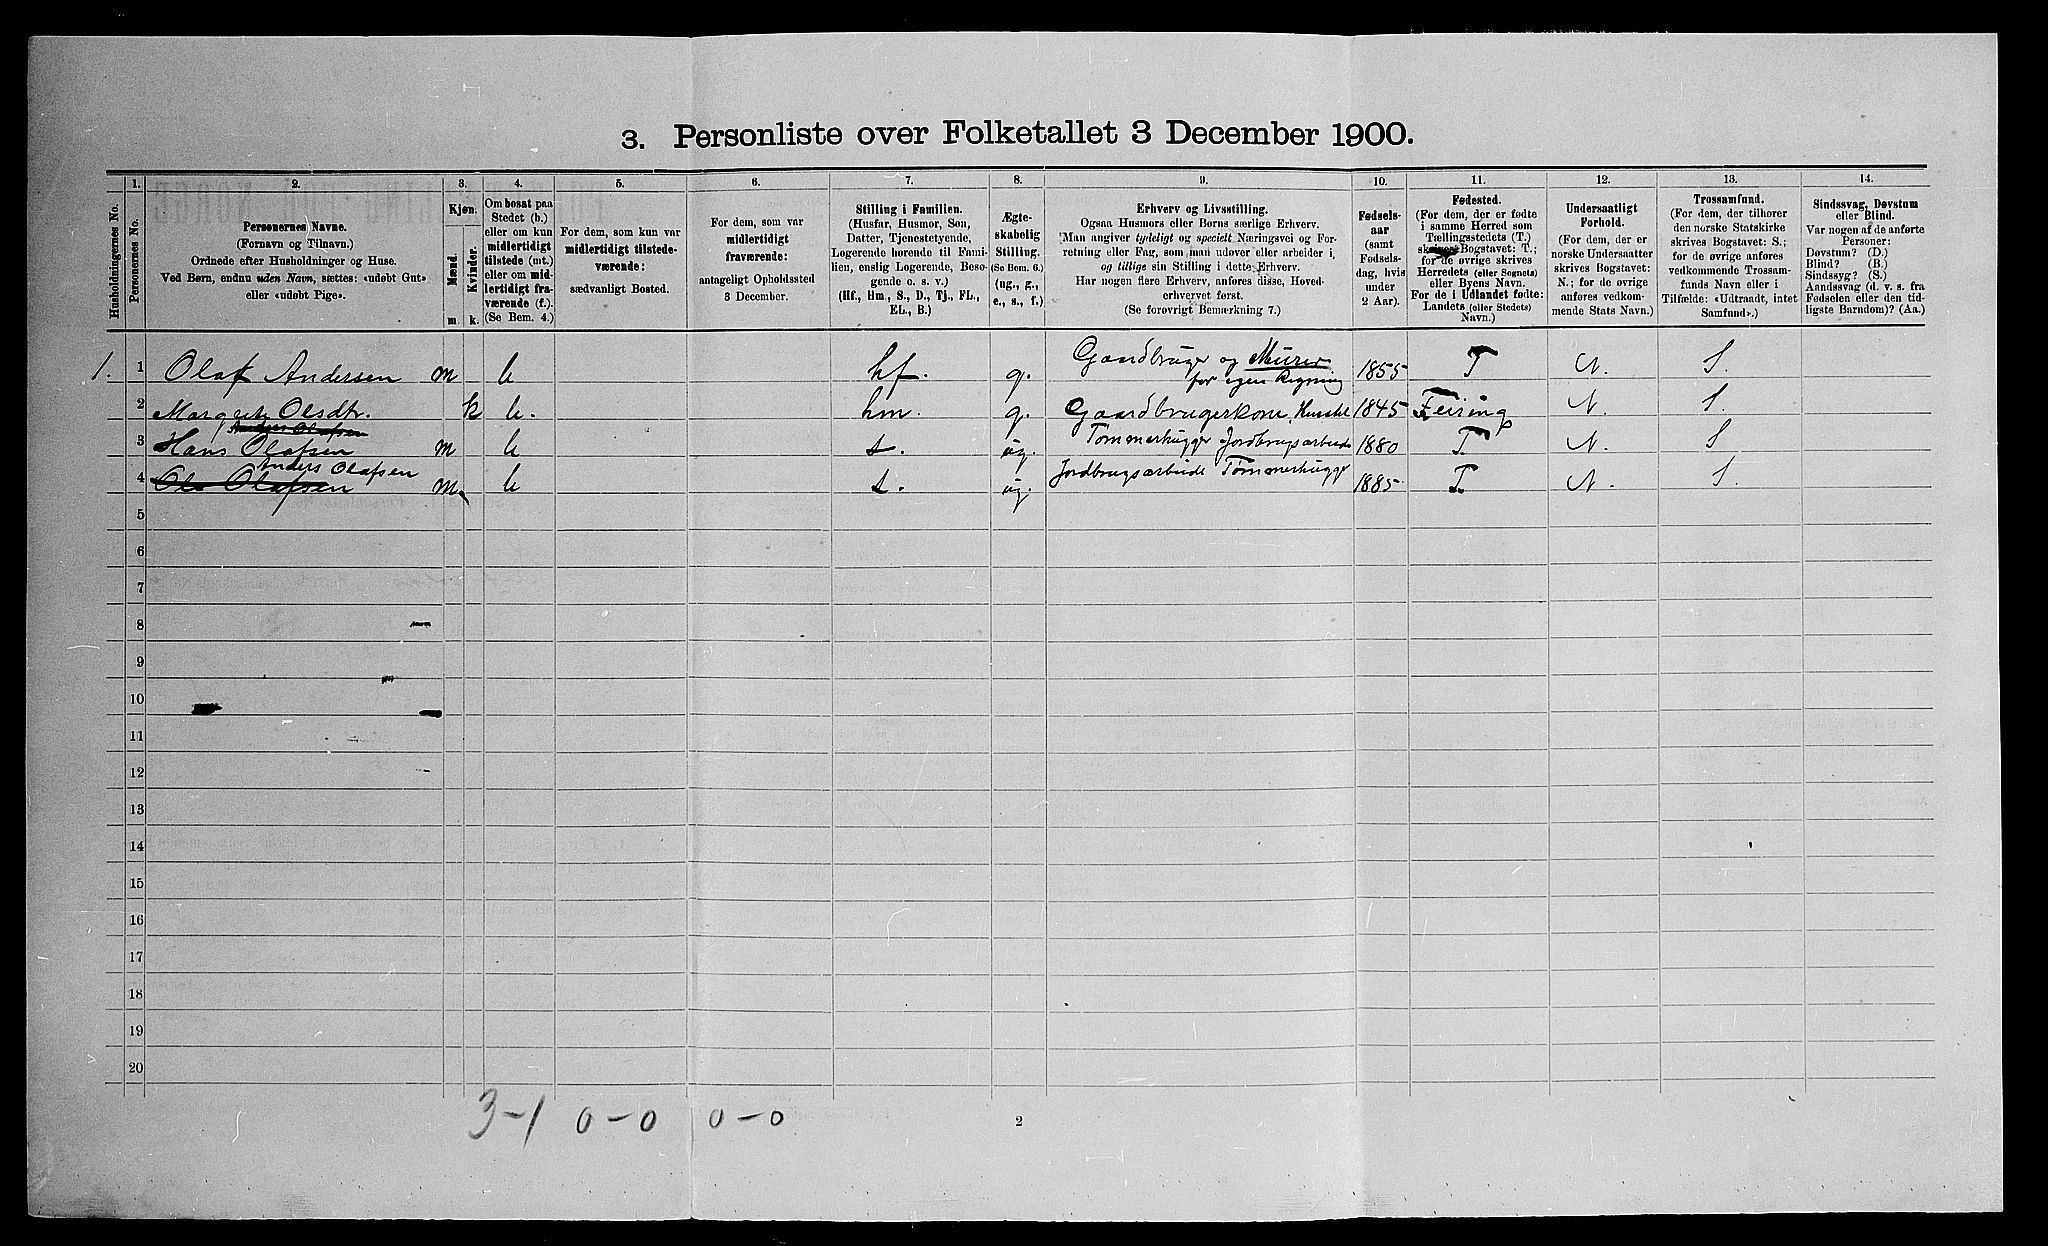 3. Personliste over Folketallet 3 December 1900.
Husholdningernes No.
1.
Personernes No.
2.
Personernes Navne.
(Fornavn og Tilnavn.)
Ordnede efter Husholdninger og Huse.
Ved Børn, endnu uden Navn, sættes: «udøbt Gut»
eller «udøbt Pige».
3.
Kjøn.
Mænd.
Kvinder.
m. k.
4.
Om bosat paa
Stedet (b.)
eller om kun
midlertidigt
tilstede (mt.)
eller om mid-
lertidigt fra-
værende (f.).
(Se Bem. 4.)
5.
For dem, som kun var
midlertidigt tilstede-
værende:
sædvanligt Bosted.
6.
For dem, som var
midlertidigt
fraværende:
antageligt Opholdssted
3 December.
7.
Stilling i Familien.
(Husfar, Husmor, Søn,
Datter, Tjenestetyende,
Logerende hørende til Fami-
lien, enslig Logerende, Besø-
gende o. s. v.)
(Hf., Hm., S., D., Tj., FL.,
EL., B.)
8.
Ægte-
skabelig
Stilling.
(Se Bem. 6.)
(ug., g.,
e., s., f.)
9.
Erhverv og Livsstilling.
Ogsaa Husmors eller Børns særlige Erhverv.
Man angiver tydeligt og specielt Næringsvei og For-
retning eller Fag, som man udøver eller arbeider i,
og tillige sin Stilling i dette Erhverv.
Har nogen flere Erhverv, anføres disse, Hoved-
erhvervet først.
(Se forøvrigt Bemærkning 7.)
10.
Fødsels-
aar
(samt
Fødsels-
dag, hvis
under
2 Aar).
11.
Fødested.
(For dem, der er fødte
i samme Herred som
Tællingsstedets (T.)
skrives Bogstavet: T.;
for de øvrige skrives
Herredets (eller Sognets)
eller Byens Navn.
For de i Udlandet fødte:
Landets (eller Stedets)
Navn.)
12.
Undersaatligt
Forhold.
(For dem, der er
norske Undersaatter
skrives Bogstavet:
N.; for de øvrige
anføres vedkom-
mende Stats Navn.)
13.
Trossamfund.
(For dem, der tilhører
den norske Statskirke
skrives Bogstavet: S.;
for de øvrige anføres
vedkommende Trossam-
funds Navn eller i
Tilfælde: «Udtraadt, intet
Samfund».)
14.
Sindssvag, Døvstum
eller Blind.
Var nogen af de anførte
Personer:
Døvstum? (D.)
Blind? (B.)
Sindssyg? (S.)
Aandssvag (d. v. s. fra
Fødselen eller den tid-
ligste Barndom)? (Aa.)
1. 1 Olaf Andersen m b hf. g. Gaardbruger og Murer 1855 T N. S.
for egen Regning
2 Margrete Olsdtr. k b. hm. g. Gaardbrugerkone, Husstel 1845 Feiring N. S.
Anders Olafsen
3 Hans Olafsen m b s. ug. Tømmerhugger Jordbrugsarbeide 1880 T. N. S
Anders Olafsen
4 Ole Olafsen m. b s. ug. Jordbrugsarbeide Tømmerhugger 1885 T. N. S.
5
6
7
8
9
10
11
12
13
14
15
16
17
18
19
20
3-1 0-0 0-0
2